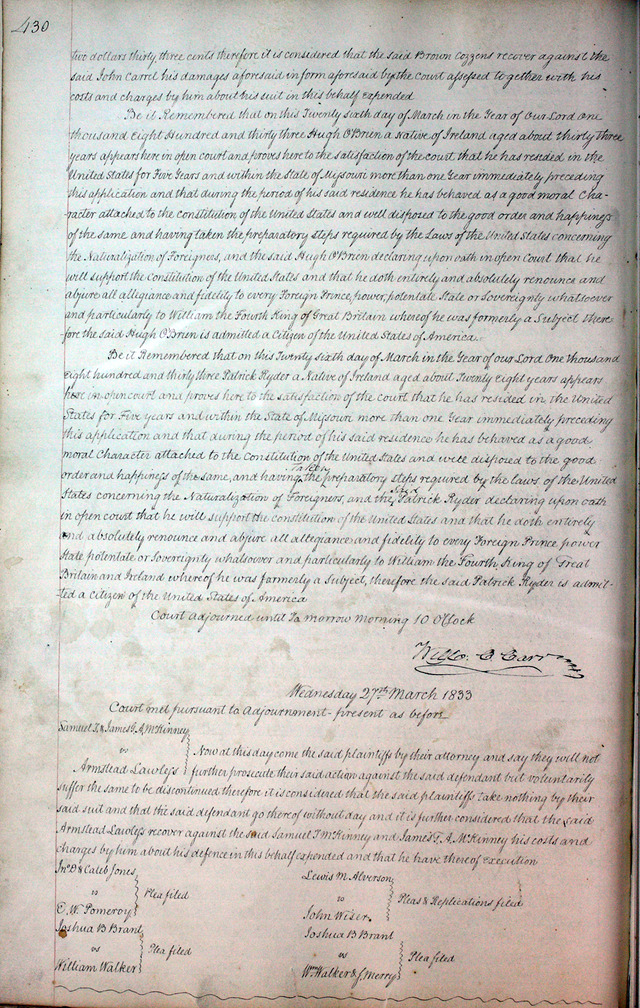 430
two dollars thirty three cents therefore it is considered that the said Brown Cozzens recover against the
said John Carrel his damages aforesaid in form aforesaid by the court assessed together with his
costs and charges by him about his suit in this behalf expended
Be it Remembered that on this Twenty sixth day of March in the Year of Our Lord One
thousand Eight Hundred and thirty three Hugh O'Brien a Native of Ireland aged about thirty three
years appears here in open court and proves here to the satisfaction of the court that he has resided in the
United States for Five Years and within the State of Missouri more than one Year immediately preceding
this application and that during the period of his said residence he has behaved as a good moral Cha-
racter attached to the constitution of the United States and well disposed to the good order and happiness
of the same and having taken the preparatory steps required by the Laws of the United States concerning
the Naturalization of Foreigners, and the said Hugh O'Brien declaring upon oath in open Court that he
will support the Constitution of the United States and that he doth entirely and absolutely renounce and
abjure all allegiance and fidelity to every Foreign Prince, power, potentate State or Sovereignty whatsoever
and particularly to William the Fourth King of Great Britain whereof he was formerly a Subject there-
fore the said Hugh O'Brien is admitted a Citizen of the United States of America.
Be it Remembered that on this Twenty sixth day of March in the Year of our Lord One thousand
Eight hundred and thirty three Patrick Ryder a Native of Ireland aged about Twenty eight years appears
here in open court and proves here to the satisfaction of the court that he has resided in the United
States for Five years and within the State of Missouri more than one Year immediately preceding
this application and that during the period of his said residence he has behaved as a good
moral Character attached to the Constitution of the United States and well disposed to the good
order and happiness of the same, and having taken the preparatory steps required by the laws of the United
States concerning the Naturalization of Foreigners, and the said Patrick Ryder declaring upon oath
in open court that he will support the constitution of the United States and that he doth entirely
and absolutely renounce and abjure all allegiance and fidelity to every Foreign Prince power
State potentate or Sovereignty whatsoever and particularly to William the Fourth King of Great
Britain and Ireland whereof he was formerly a Subject, therefore the said Patrick Ryder is admit-
ted a citizen of the United States of America
Court adjourned until To morrow morning 10 O'Clock
Willo. C. Carr
Wednesday 27th March 1833
Court met pursuant to adjournment present as before
Samuel T. & James G. A. McKinney
vs
Armstead Lawless
Now at this day come the said plaintiffs by their attorney and say they will not
further prosecute their said action against the said defendant but voluntarily
suffer the same to be discontinued therefore it is considered that the said plaintiffs take nothing by their
said suit and that the said defendant go thereof without day and it is further considered that the said
Armstead Lawless recover against the said Samuel T McKinney and James G. A. McKinney his costs and
charges by him about his defence in this behalf expended and that he have thereof execution
Jno D & Caleb Jones
vs
C. W. Pomeroy
Plea filed
Lewis M. Alverson
vs
John Wiser
Pleas & Replications filed
Joshua B Brant
vs
William Walker
Plea filed
Joshua B Brant
vs
Wm Walker & J. Merry
Plea filed